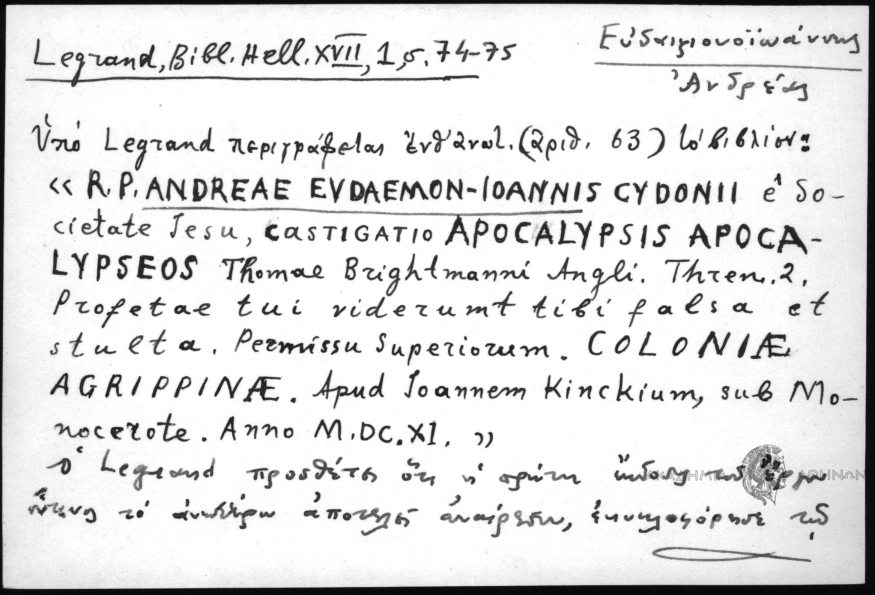 Legrand, Bibl. Hell. XVII, 1, σ. 74-75
Εὐδαιμονοϊωάννης
Ἀνδρέας
Ὑπό Legrand περιγράφεται ἐνθ' ἀνωτ. (ἀριθ. 63) τό βιβλίον:
« R. P. ANDREAE EVDAEMON-IOANNIS CYDONII è So-
cietate Iesu, CASTIGATIO APOCALYPSIS APOCA-
LYPSEOS Thomae Brightmanni Angli. Thren. 2.
Profetae tui viderumt tibi falsa et
stulta. Permissu Superiorum. COLONIÆ
AGRIPPINÆ. Apud Ioannem Kinckium, sub Mo-
nocerote. Anno M.DC.XI. »
Ὁ Legrand προσθέτει ὅτι ἡ πρώτη ἔκδοσις τοῦ ἔργου
ἧτινος τό ἀνωτέρω ἀποτελεῖ ἀναίρεσιν, ἐκυκλοφόρησε τῷ
ΑΚΑΔΗΜΙΑ ΑΘΗΝΩΝ